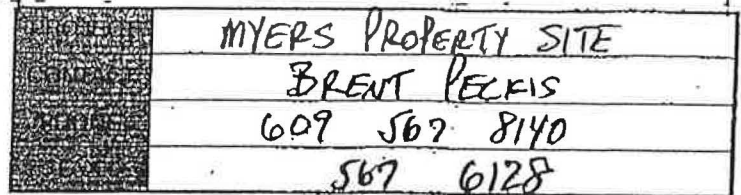 MYERS PROPERTY SITE
BRENT PECKIS
609 567 8140
567 6128